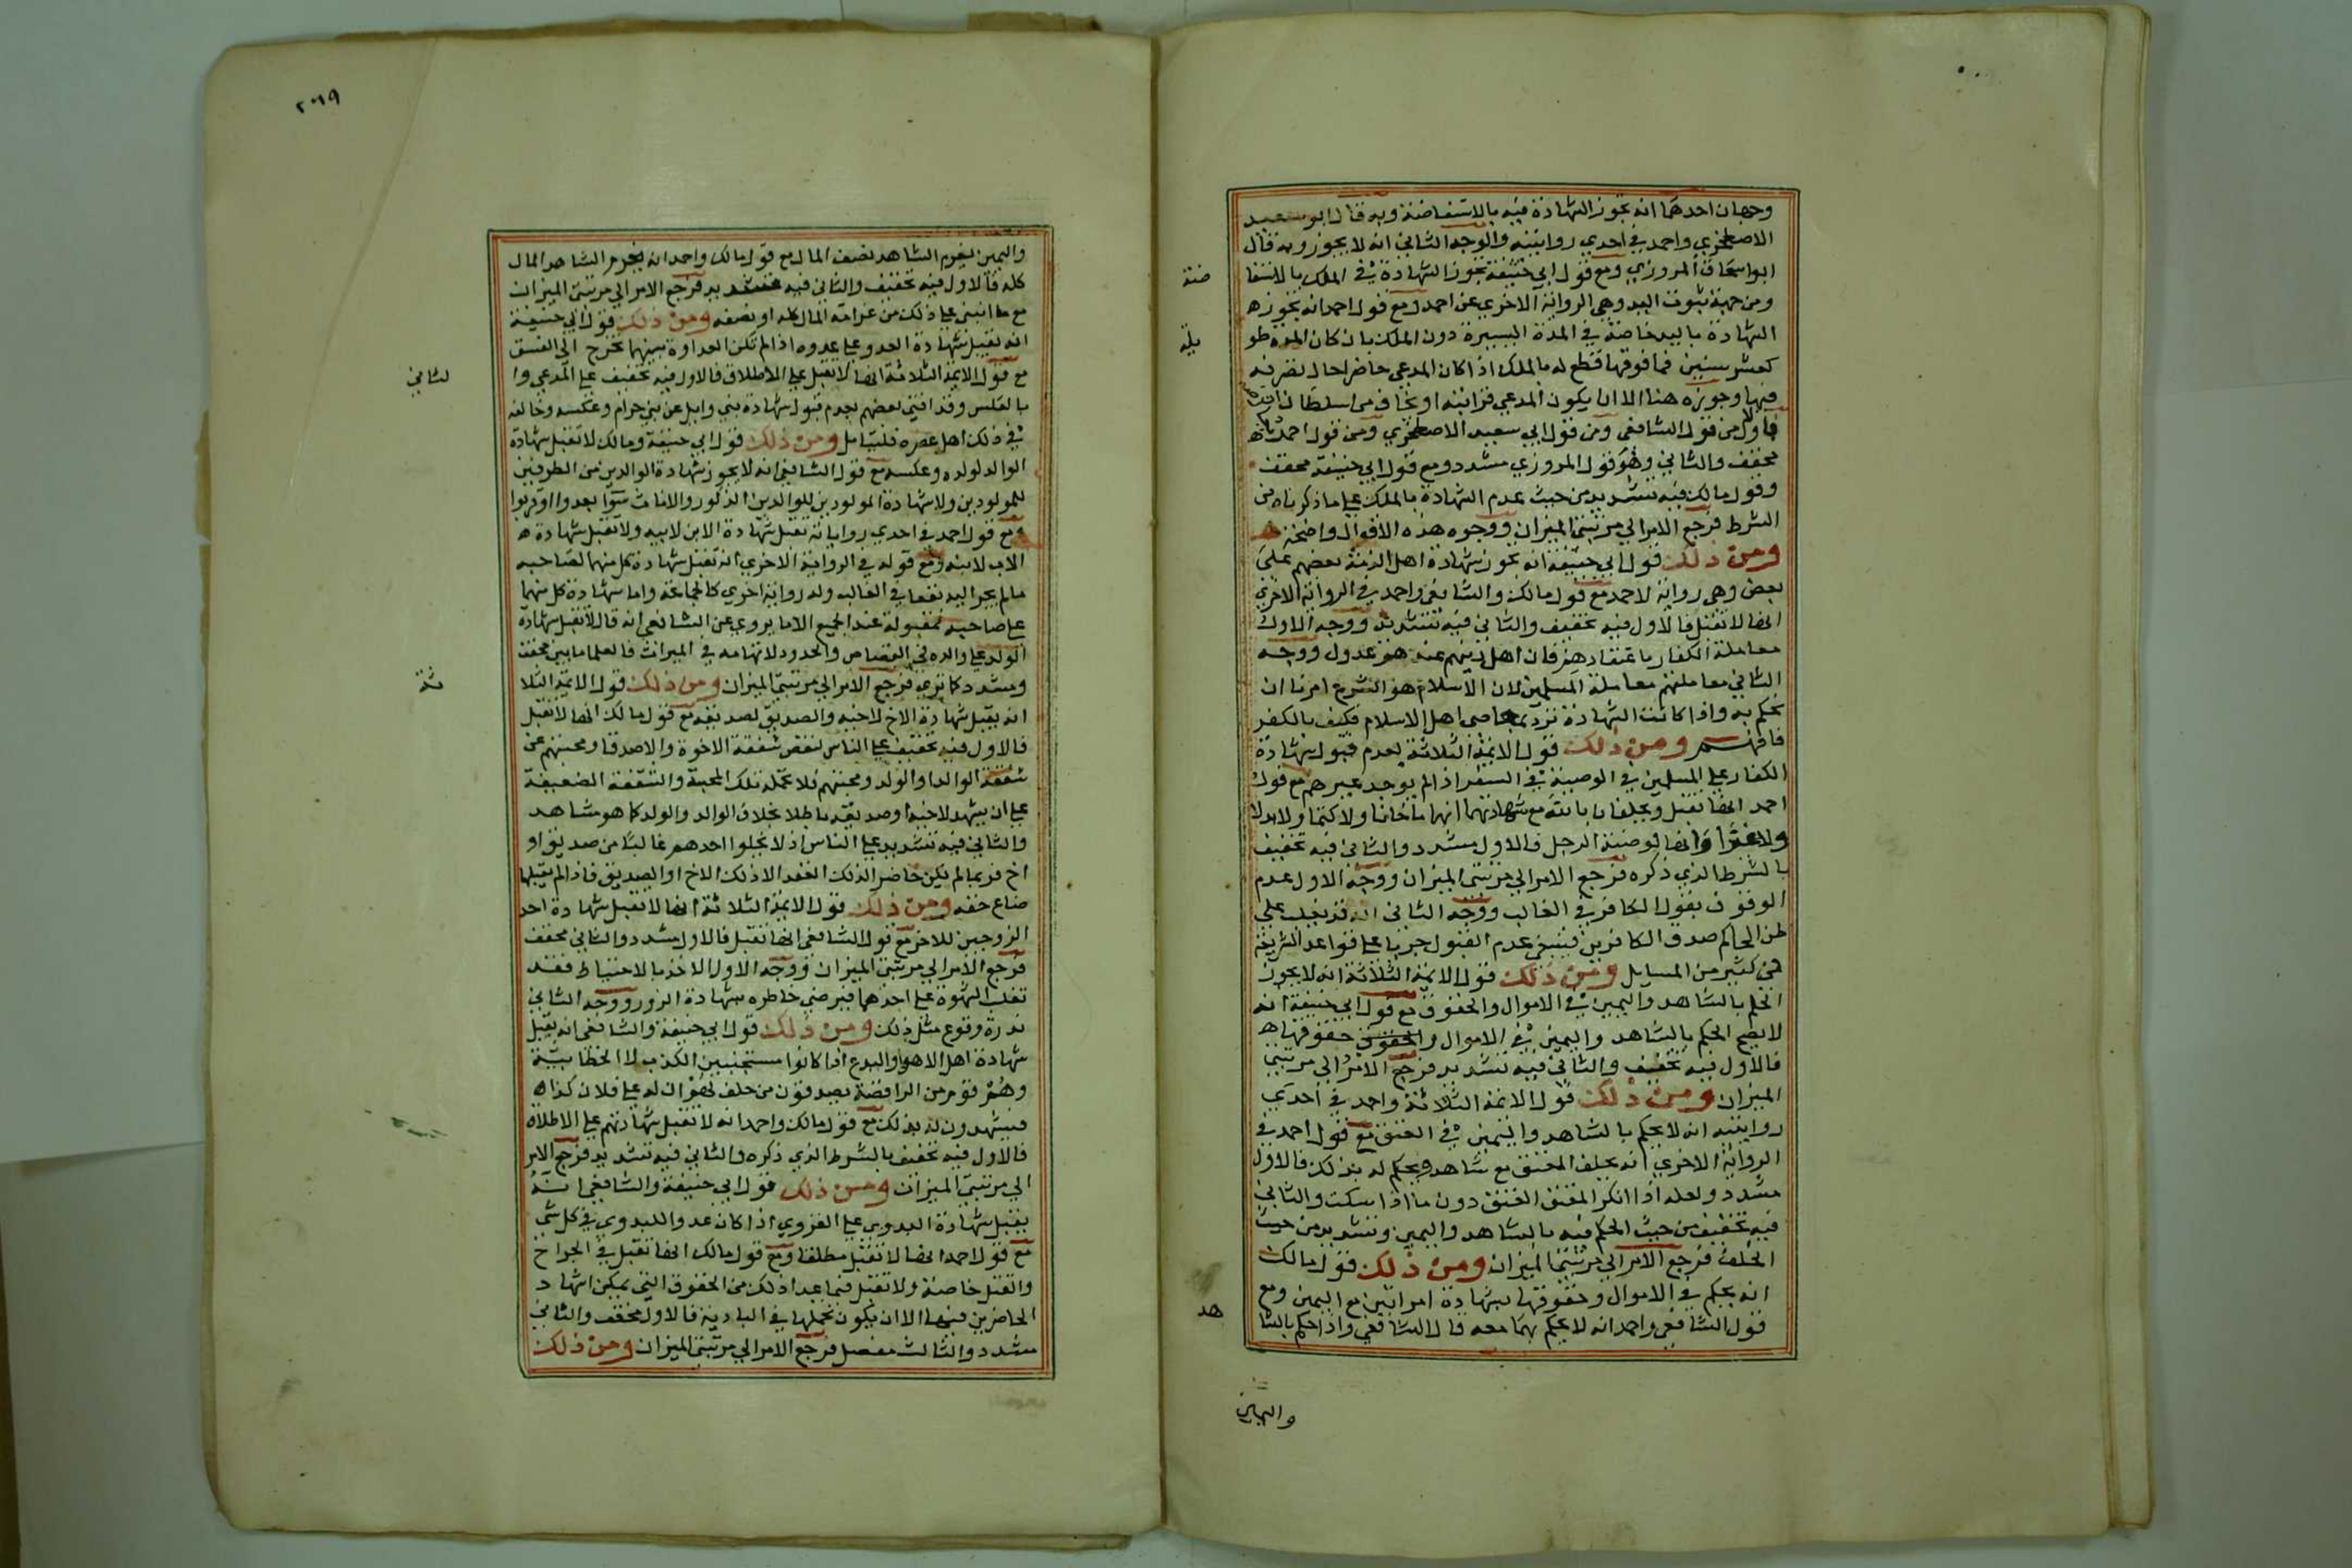 وجهان احدهما انه تجوز الشهادة فيه بالاستفاضة وبه قال ابو سعيد
الاصطخري واحمد في احدي روايتيه والوجه الثاني انه لا يجوز وبه قال
ابو اسحاق المروزي ومع قول ابي حنيفة تجوز الشهادة في الملك بالاستفا
ضة
ومن جهة ثبوت اليد وهي الرواية الاخري عن احمد ومع قول احمد انه تجوز ه
الشهادة باليد خاصة في المدة اليسيرة دون الملك بان كان المدة طو
يلة
كعشر سنين فما فوقها قطع له بالملك اذا كان المدعي حاضرا حال تصرفه
فيها وحوزه هنا الا ان يكون المدعي قرابته او يخاف من سلطان
فالاول من قول الشافعي ومن قول ابي سعيد الاصطخري ومن قول احمد
مخفف والثاني وهو قول المروزي مشدد ومع قول ابي حنيفة مخفف
وقول مالك فيه تشديد من حيث عدم الشهادة بالملك علي ما ذكرناه من
الشرط فرجع الامر الي مرتبتي الميزان ووجوه هذه الاقوال واضحة
ومن ذلك قول ابي حنيفة انه تجوز شهادة اهل الذمة بعضهم علي
بعض وهي رواية لاحمد مع قول مالك والشافعي واحمد في الرواية الاخري
انها لا تقبل فالاول فيه تخفيف والثاني فيه تشديد ووجه الاول
معاملة الكفار باعتقادهم فان اهل دينهم عندهم عدول ووجه
الثاني معاملتهم معاملة المسلمين لان الاسلام هو الشرع امرنا ان
نحكم به واذا كانت الشهادة ترد بمعاصي اهل الاسلام فكيف بالكفر
فافهم ومن ذلك قول الايمة الثلاثة بعدم قبول شهادة
الكفار علي المسلمين في الوصية في السفر اذا لم يوجد غيرهم مع قول
احمد انها تقبل ويحلفان بالله مع شهادتهما انهما ما خانا ولا كتما ولا بدلا
ولا غيرا وانها لوصية الرجل فالاول مشدد والثاني فيه تخفيف
بالشرط الذي ذكره فرجع الامر الي مرتبتي الميزان ووجه الاول عدم
الوفوق بقول الكافر في الغالب ووجه الثاني انه قد يغلب علي
ظن الحاكم صدق الكافرين فينبغي عدم القبول جريا علي قواعد الشريعة
في كثير من المسايل ومن ذلك قول الايمة الثلاثة انه لا يجوز
الحكم بالشاهد واليمين في الاموال والحقوق مع قول ابي حنيفة انه
لا يصح الحكم بالشاهد واليمين في الاموال والحقوق حقوقها ه
فالاول فيه تخفيف والثاني فيه تشديد فرجع الامر الي مرتبتي
الميزان ومن ذلك قول الايمة الثلاثة واحمد في احدي
روايتيه انه لا يحكم بالشاهد واليمين في العتق مع قول احمد في
الرواية الاخري انه يحلف المعتق مع شاهده ويحكم له بذلك فالاول
مشدد ولعله اذا انكر المعتق العتق دون ما اذا سكت والثاني
فيه تخفيف من حيث الحكم فيه بالشاهد واليمين وتشديد من حيث
الحلف فرجع الامر الي مرتبتي الميزان ومن ذلك قول مالك
انه يحكم في الاموال وحقوقها بشهادة امراتين مع اليمين ومع
قول الشافعي واحمد انه لا يحكم بهما معه قال الشافعي واذا حكم بالشا
هد
واليمين
٢٠١٩
واليمين يغرم الشاهد نصف المال مع قول مالك واحمد انه يغرم الشاهد المال
كله فالاول فيه تخفيف والثاني فيه تشديد فرجع الامر الي مرتبتي الميزان
مع ما انبني علي ذلك من غرامة المال كله او نصفه ومن ذلك قول ابي حنيفة
انه تقبل شهادة العدو علي عدوه اذا لم تكن العداوة بينهما تخرج الي الفسق
مع قول الايمة الثلاثة انها لا تقبل علي الاطلاق فالاول فيه تخفيف علي المدعي وا
لثاني
بالعكس وقد افتي بعضهم بعدم قبول شهادة بني وايل عن بني حرام وعكسه وخالفه
في ذلك اهل عصره فليتامل ومن ذلك قول ابي حنيفة ومالك لا تقبل شهادة
الوالد لولده وعكسه مع قول الشافعي انه لا يجوز شهادة الوالدين من الطرفين
للمولودين ولا شهادة المولودين للوالدين الذكور والاناث سوا بعدوا او قربوا
ومع قول احمد في احدي رواياته تقبل شهادة الابن لابيه ولا تقبل شهادة ه
الاب لابنه ومع قوله في الرواية الاخري انه تقبل شهادة كل منهما لصاحبه
ما لم يجر اليه نفعا في الغالب وله رواية اخري كالجماعة واما شهادة كل منهما
علي صاحبه فمقبولة عند الجميع الا ما يروي عن الشافعي انه قال لا تقبل شهادة
الولد علي والده في القصاص والحدود لاتهامه في الميراث فالعلما ما بين مخفف
ومشدد كما تري فرجع الامر الي مرتبتي الميزان ومن ذلك قول الايمة الثلا
ثة
انه يقبل شهادة الاخ لاخيه والصديق لصديقه مع قول مالك انها لا تقبل
فالاول فيه تخفيف علي الناس لنقص شفقة الاخوة والاصدقا ومحبتهم عن
شفقة الوالد او الولد ومحبتهم فلا تحمله تلك المحبة والشفقة الضعيفة
علي ان يشهد لاخيه او صديقه باطلا بخلاف الوالد والولد كما هو مشاهد
والثاني فيه تشديد علي الناس اذ لا يخلوا احدهم غالبا من صديق او
اخ فربما لم يكن حاضر لذلك العقد الا ذلك الاخ او الصديق فاذا لم يقبلها
ضاع حقه ومن ذلك قول الايمة الثلاثة انها لا تقبل شهادة احد
الزوجين للاخر مع قول الشافعي انها تقبل فالاول مشدد والثاني مخفف
فرجع الامر الي مرتبتي الميزان ووجه الاول الاخذ بالاحتياط فقد
تغلب الشهوة علي احدهما فيرضي خاطره بشهادة الزور ووجه الثاني
ندرة وقوع مثل ذلك ومن ذلك قول ابي حنيفة والشافعي انه يقبل
شهادة اهل الاهوا والبدع اذا كانوا مستجنبين الكذب الا الخطابية
وهم قوم من الرافضة يصدقون من حلف لهم ان له علي فلان كذا ه
فيشهدون له بذلك مع قول مالك واحمد انه لا تقبل شهادتهم علي الاطلاق
فالاول فيه تخفيف بالشرط الذي ذكره والثاني فيه تشديد فرجع الامر
الي مرتبتي الميزان ومن ذلك قول ابي حنيفة والشافعي انه
يقبل شهادة البدوي علي القروي اذا كان عدوا للبدوي في كل شي
مع قول احمد انها لا تقبل مطلقا ومع قول مالك انها تقبل في الجراح
والقتل خاصة ولا تقبل فيما عدا ذلك من الحقوق التي يمكن اشهاد
الحاضرين فيها الا ان يكون تحملها في البادية فالاول مخفف والثاني
مشدد والثالث مفصل فرجع الامر الي مرتبتي الميزان ومن ذلك